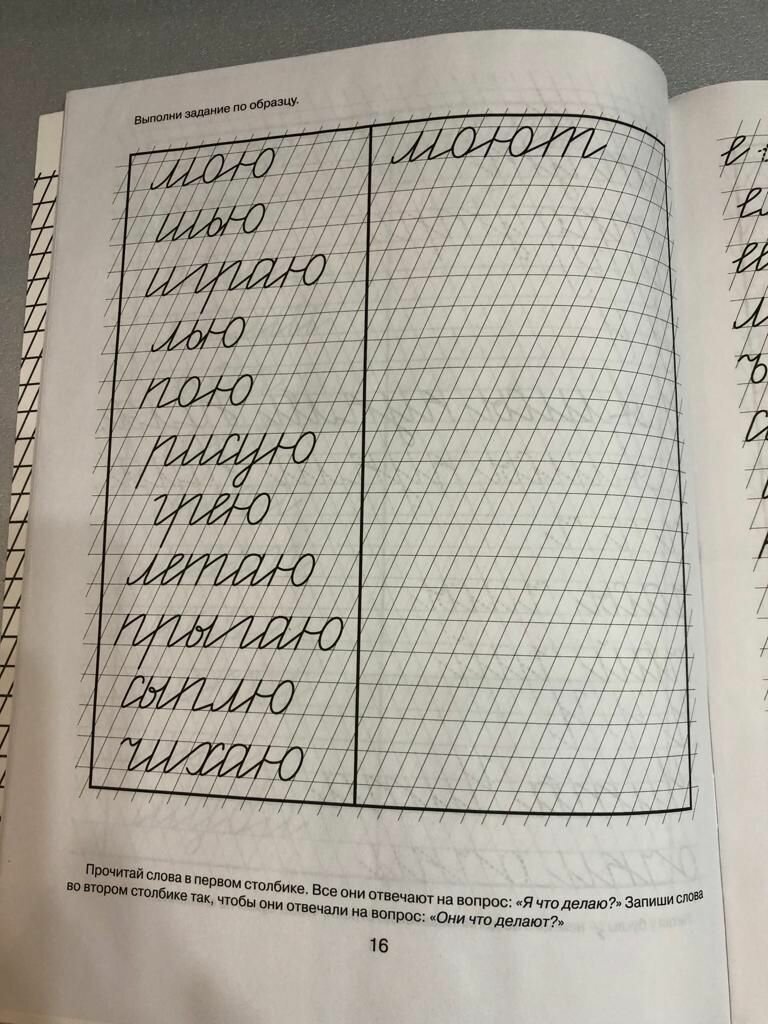 Выполни задание по образцу.
мою моют
шью
играю
лью
пою
рисую
грею
летаю
прыгаю
сыплю
чихаю
Прочитай слова в первом столбике. Все они отвечают на вопрос: «Я что делаю?» Запиши слова
во втором столбике так, чтобы они отвечали на вопрос: «Они что делают?»
16